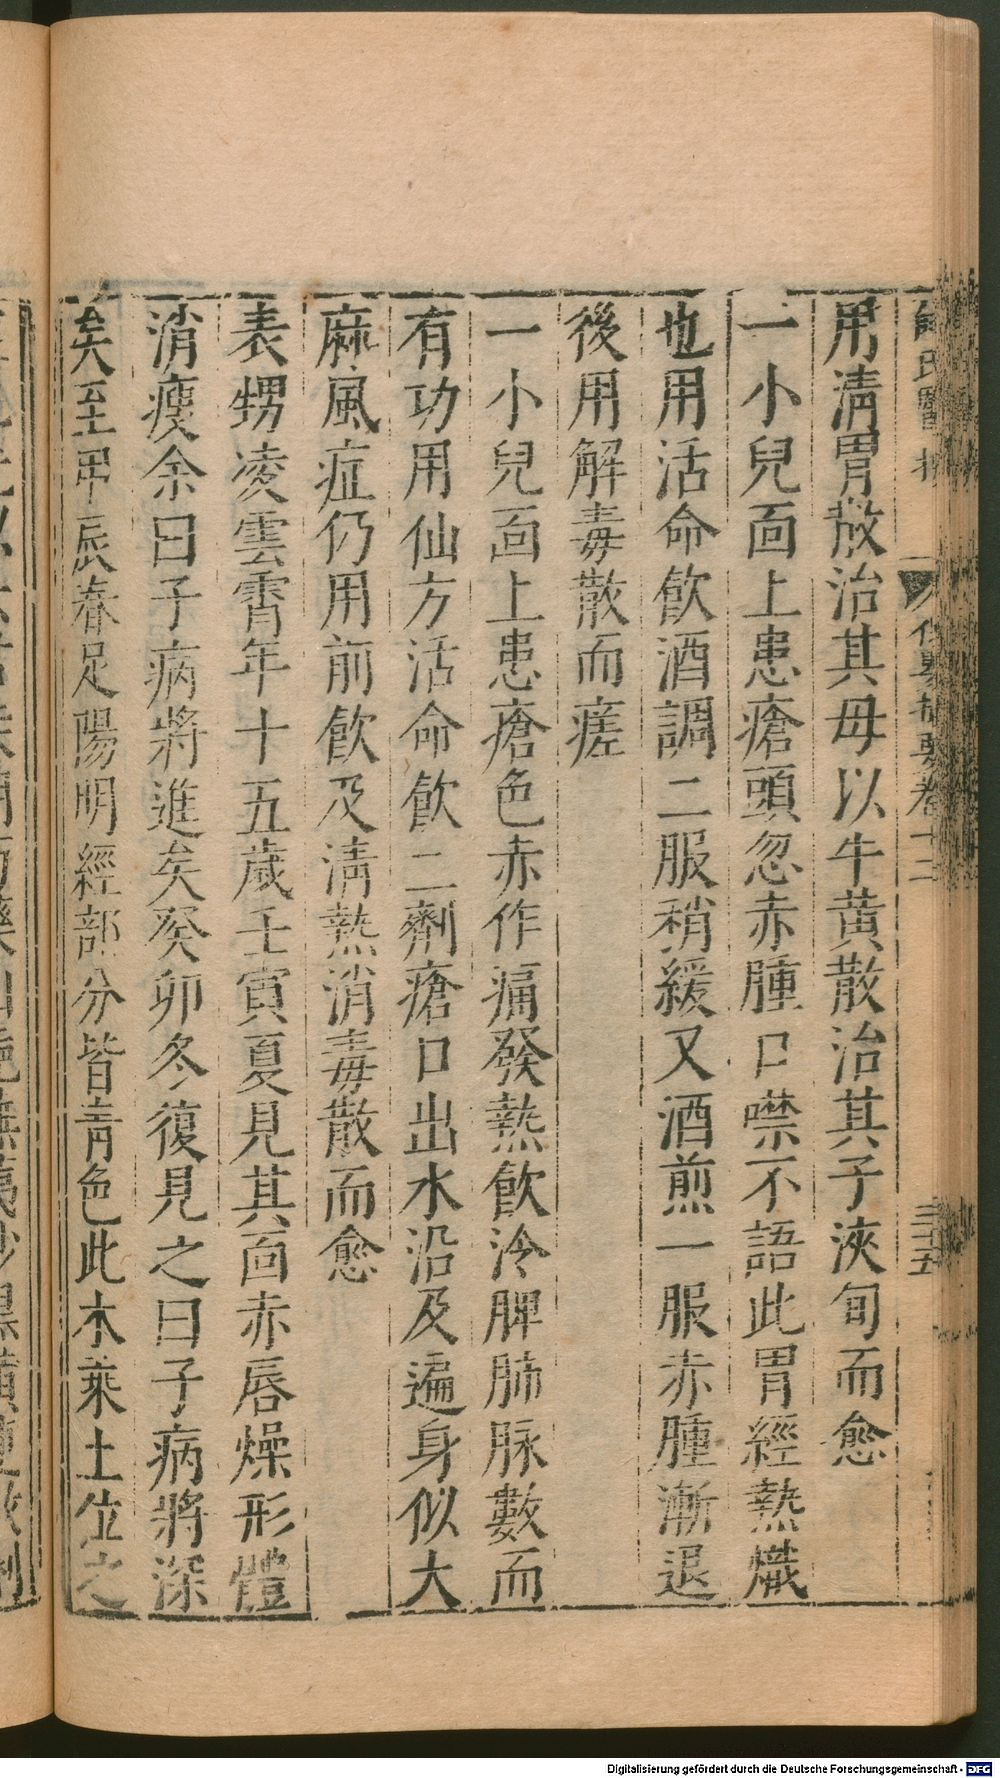 薛氏醫按 保嬰撮要卷十二 三十五
用清胃散治其母以牛黃散治其子浹旬而愈
一小兒面上患瘡頭忽赤腫口噤不語此胃經熱熾
也用活命飲酒調二服稍緩又酒煎一服赤腫漸退
後用解毒散而瘥
一小兒面上患瘡色赤作痛發熱飲冷脾肺脉數而
有功用仙方活命飲二劑瘡口出水沿及遍身似大
麻風症仍用前飲及清熱消毒散而愈
表甥凌雲霄年十五歲壬寅夏見其面赤唇燥形體
消瘦余曰子病將進矣癸卯冬復見之曰子病將深
矣至甲辰春足陽明經部分皆青色此木乘土位之
Digitalisierung gefördert durch die Deutsche Forschungsgemeinschaft - DFG